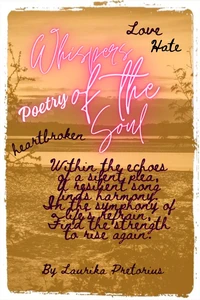 Love
Hate
Whispers
of the
Poetry
Soul
heartbroken
Within the echoes
of a silent plea,
a resilient song
finds harmony,
In the symphony of
life's refrain,
Find the strength
to rise again.
By Laurika Pretorius